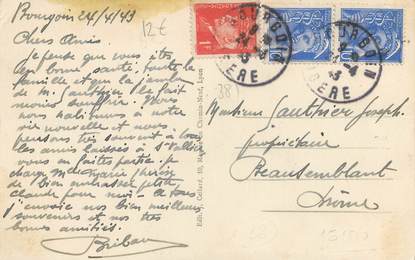 Bourgoin 24/4/43
12€
Chers Amis
Je pense que vous êtes
en bonne santé, toute la
famille et que la jambe
de Mr Gauthier le fait
moins souffrir. Nous
nous habituons à notre
vie nouvelle et nous
pensons très souvent à tous
les amis laissés à St Vallier
vous en faites partie. Je
charge Melle Marie Thérèse
de bien embrasser petite
Claude pour moi. A tous
j'envoie nos bien meilleurs
souvenirs et nos très
bonnes amitiés
BOURGOIN
ISERE
BOURGOIN
ISERE
38
Edit. J. Collard, 10, Chemin-Neuf, Lyon
Monsieur Gauthier Joseph
propriétaire
Beausemblant
Drôme